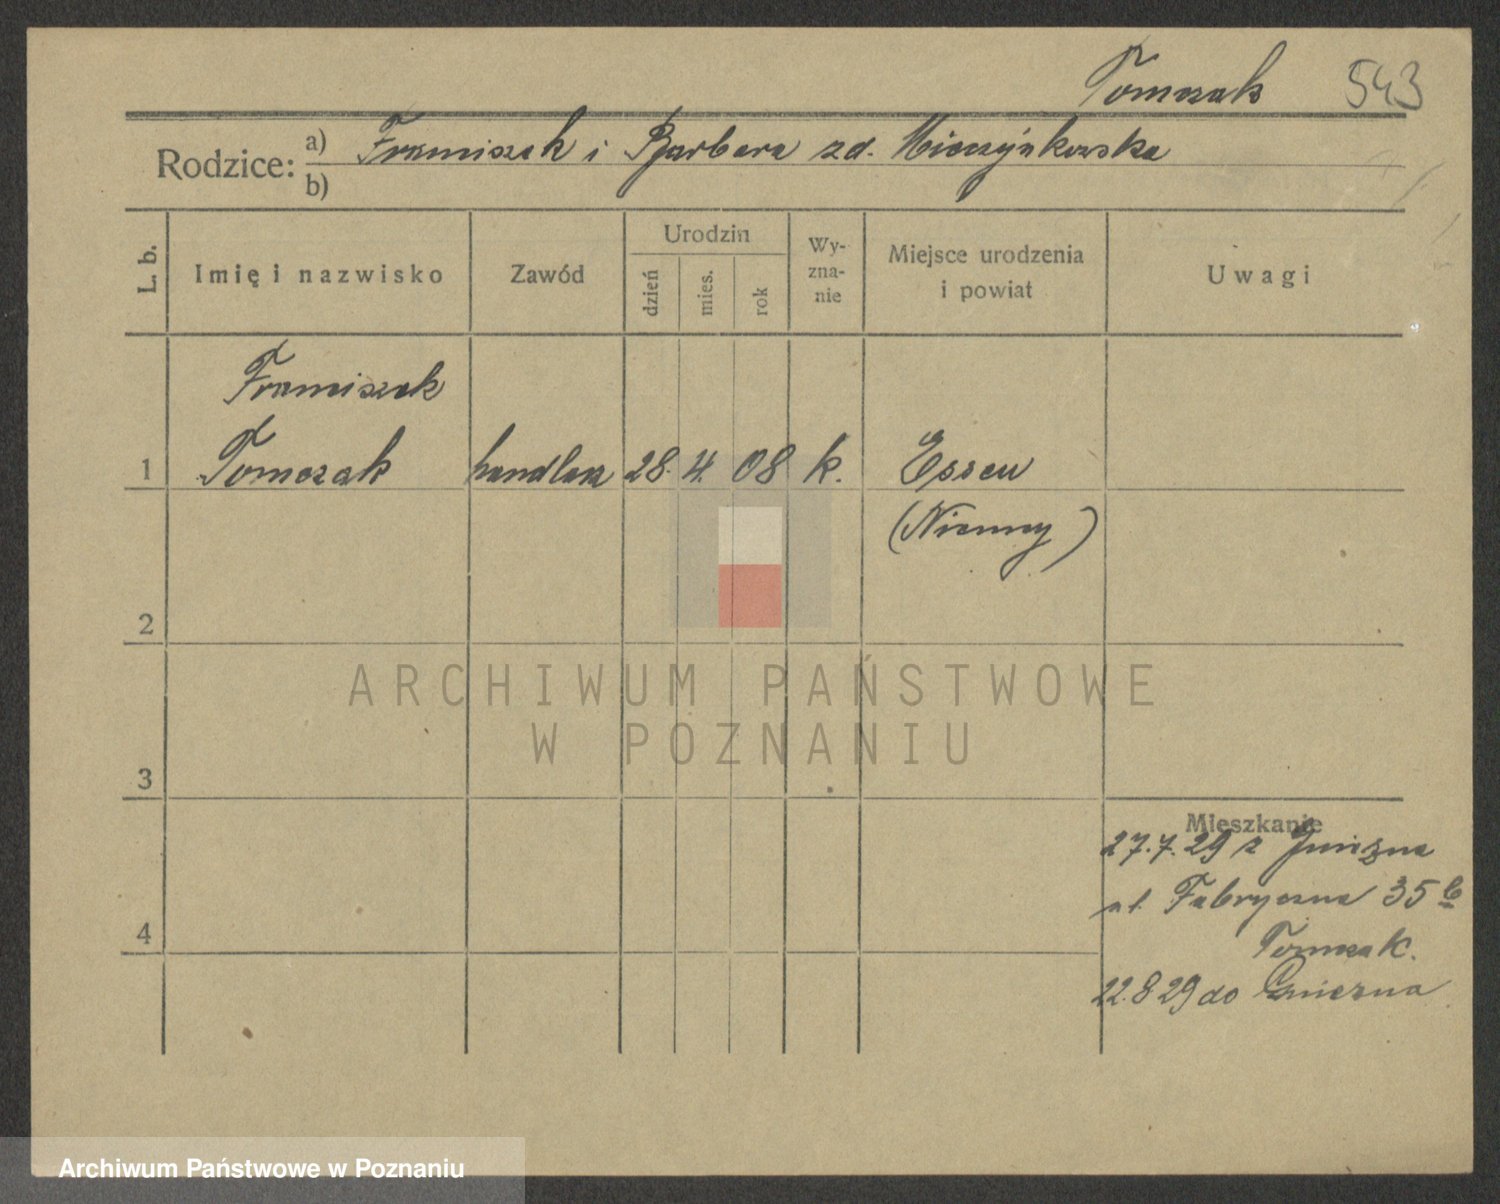 Tomczak 543
Rodzice: a) Franciszek i Barbara zd. Mieczyńkowska
b)
L. b. Imię i nazwisko Zawód Urodzin dzień mies. rok Wy-zna-nie Miejsce urodzenia i powiat Uwagi
Franciszek
1 Tomczak handlarz 28. 4. 08 k. Essen
(Niemcy)
2
ARCHIWUM PAŃSTWOWE
W POZNANIU
3
Mieszkanie
27.7.29 z Gniezna
ul. Fabryczna 35 b
4 Tomczak.
22.8 29 do Gniezna
Archiwum Państwowe w Poznaniu